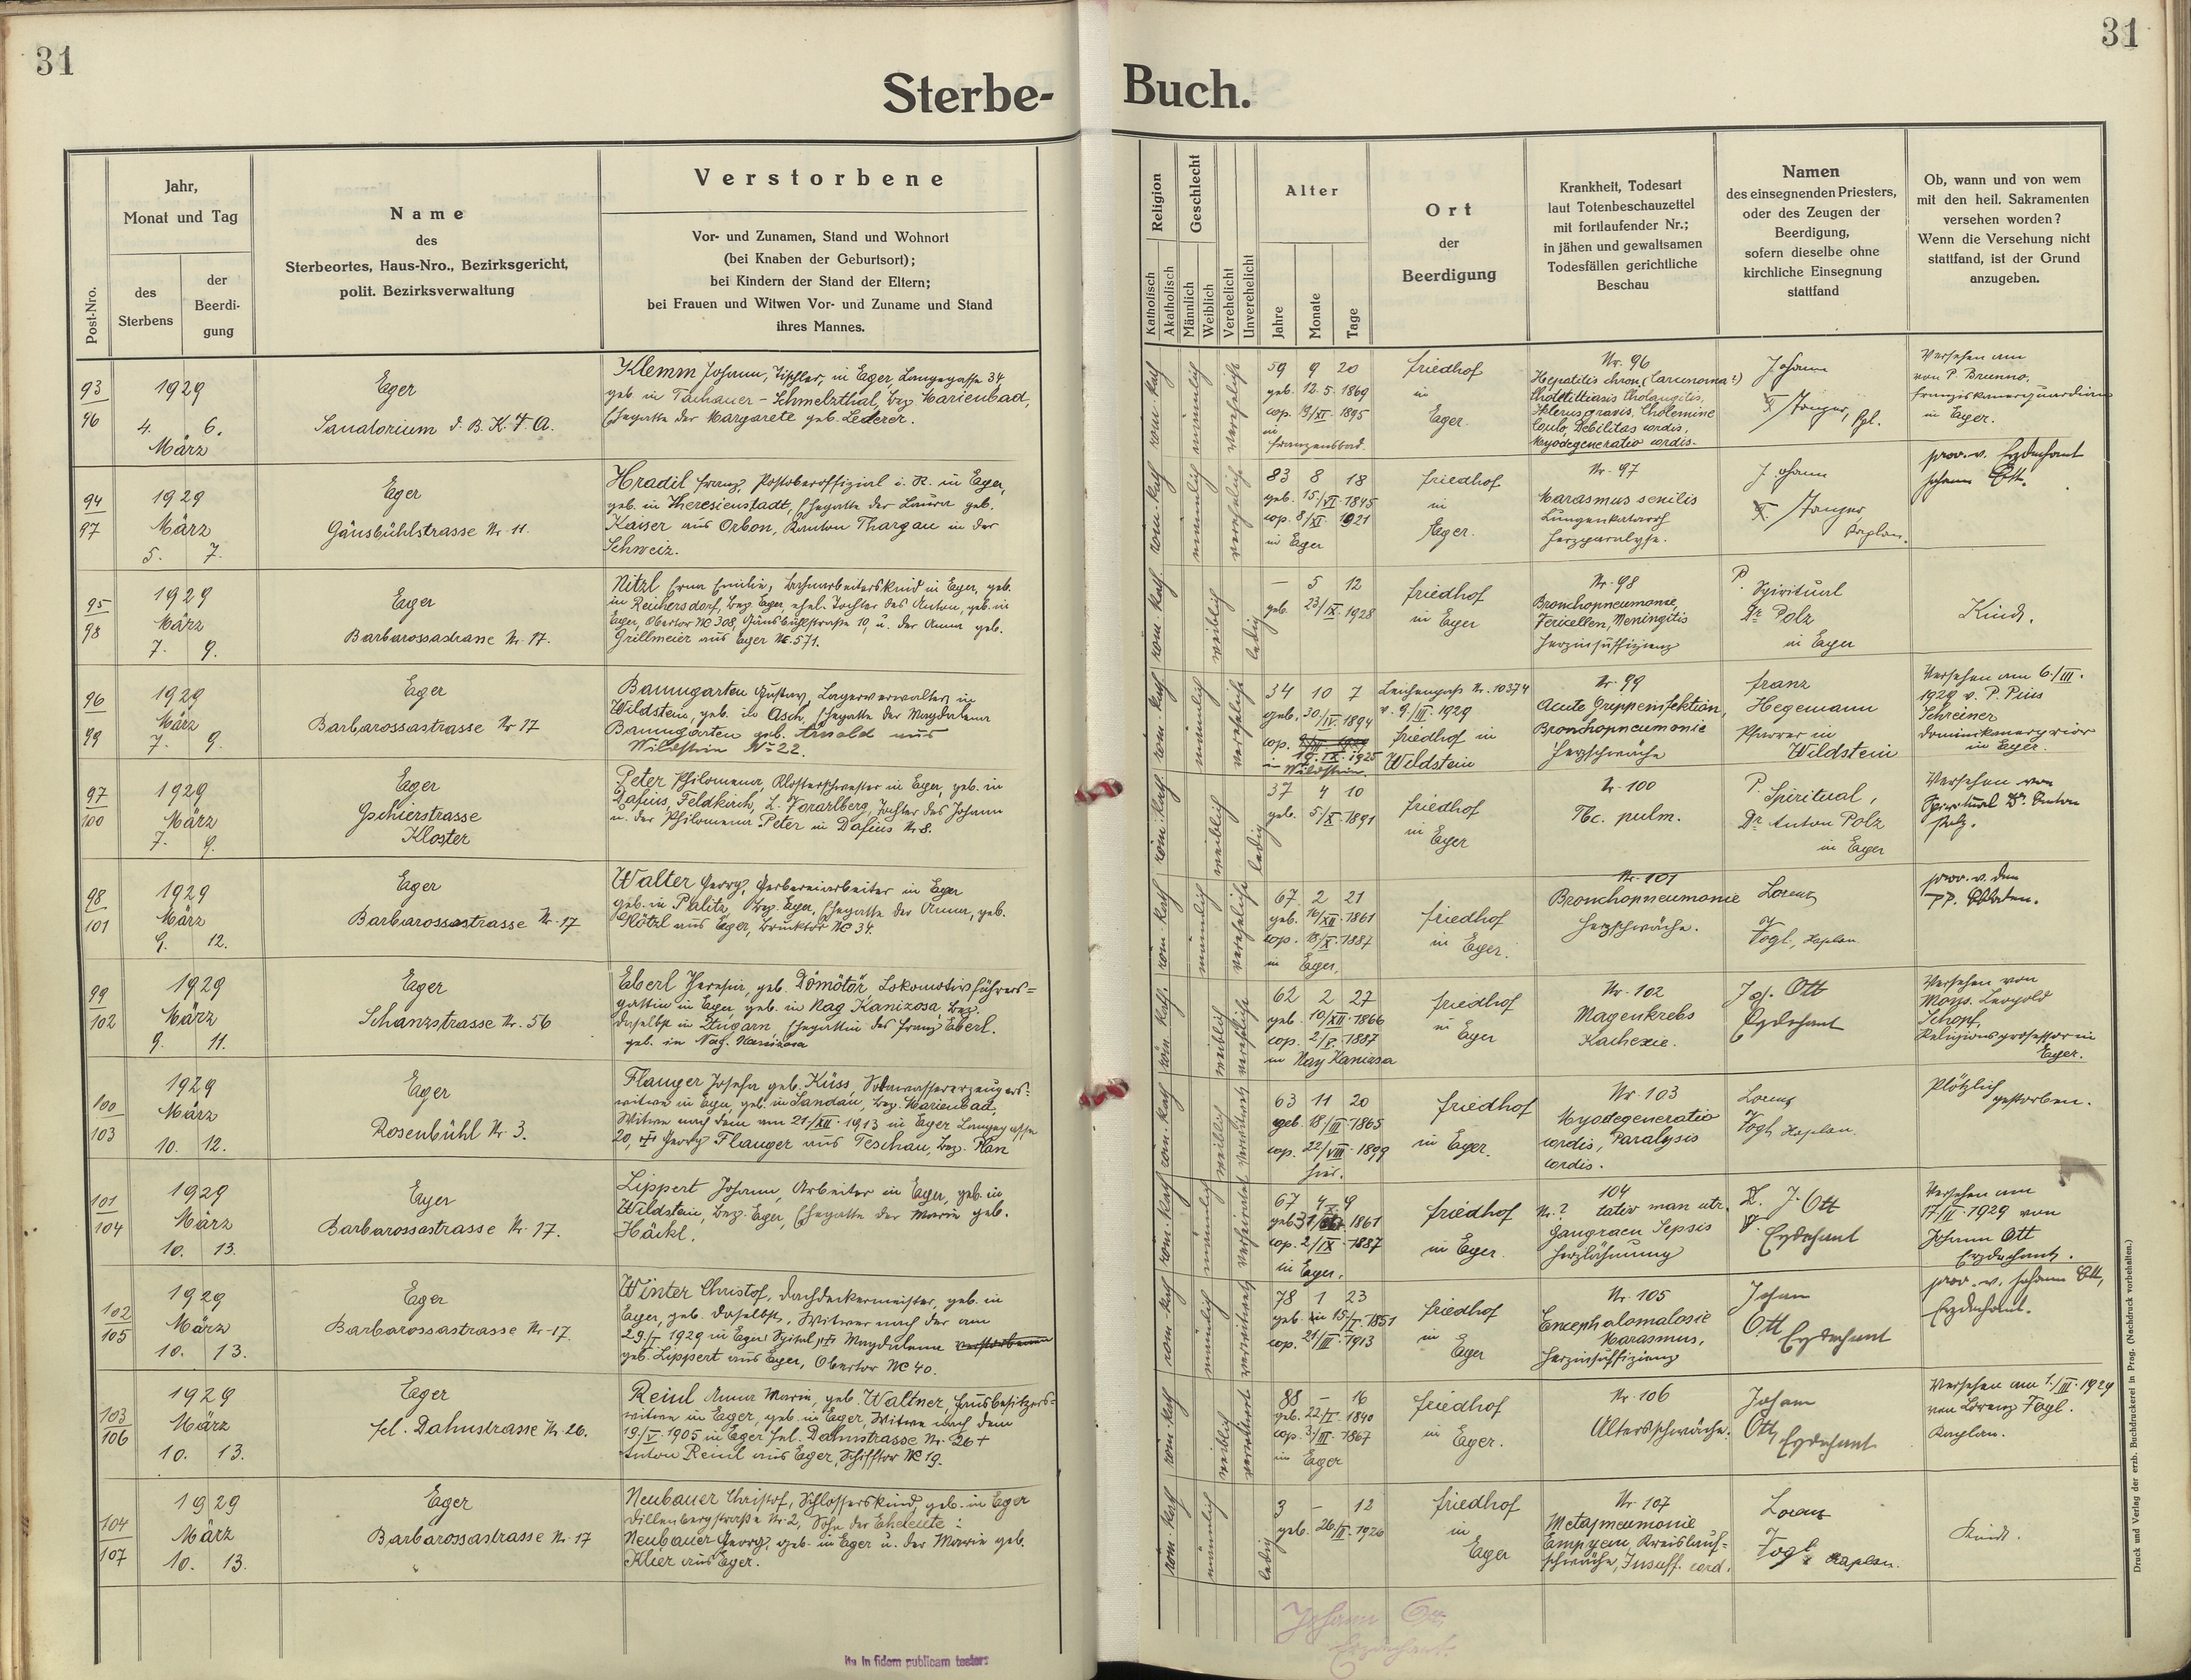 31
31
Sterbe-
Buch.
Post-Nro.
Jahr,
Monat und Tag
des
Sterbens
der
Beerdi-
gung
Name
des
Sterbeortes, Haus-Nro., Bezirksgericht,
polit. Bezirksverwaltung
Verstorbene
Vor- und Zunamen, Stand und Wohnort
(bei Knaben der Geburtsort);
bei Kindern der Stand der Eltern;
bei Frauen und Witwen Vor- und Zuname und Stand
ihres Mannes.
Religion
Katholisch
Akatholisch
Geschlecht
Männlich
Weiblich
Verehelicht
Unverehelicht
Alter
Jahre
Monate
Tage
Ort
der
Beerdigung
Krankheit, Todesart
laut Totenbeschauzettel
mit fortlaufender Nr.;
in jähen und gewaltsamen
Todesfällen gerichtliche
Beschau
Namen
des einsegnenden Priesters,
oder des Zeugen der
Beerdigung,
sofern dieselbe ohne
kirchliche Einsegnung
stattfand
Ob, wann und von wem
mit den heil. Sakramenten
versehen worden?
Wenn die Versehung nicht
stattfand, ist der Grund
anzugeben.
93
96
1929
4. 6.
März
Eger
Sanatorium d. B. K. V. A.
Klemm Johann, Tischler, in Eger, Langegasse 34,
geb. in Tachauer-Schmelzthal, bez. Marienbad,
Ehegatte der Margarete geb. Lederer.
röm. kath.
männlich
verehelicht
59 9 20
geb. 12. 5. 1869
cop. 19/XI. 1895
in
Franzensbad.
Friedhof
in
Eger.
Nr. 96
Hepatitis chron. (Carcinoma?)
Cholelithiasis Cholangitis,
Ikterus gravis, Cholemine
Debilitas cordis,
Myodegeneratio cordis.
Johann
Stanger, Kpl.
Versehen am
von P. Brunno,
Franziskanerguardian
in Eger.
94
97
1929
März
5. 7.
Eger
Gänsbühlstrasse Nr. 11.
Hradil Franz, Postoberoffizial i. R. in Eger,
geb. in Theresienstadt, Ehegatte der Laura geb.
Kaiser aus Orbon, Kanton Thargau in der
Schweiz.
röm. kath.
männlich
verehelicht
83 8 18
geb. 15/VI. 1845
cop. 8/XI. 1921
in Eger
Friedhof
in
Eger.
Nr. 97
Marasmus senilis
Lungenkatarrh
Herzparalyse.
Johann
Stanger
Kaplan.
prov. v. Erzdechant
Johann Ott.
95
98
1929
März
7. 9.
Eger
Barbarossastrasse Nr. 17.
Nitzl Erna Emilie, Bahnarbeiterskind in Eger, geb.
in Reichersdorf, bez. Eger, ehel. Tochter des Anton, geb. in
Eger, Obertor NC 308, Gänsbühlstraße 10, u. der Anna geb.
Grillmeier aus Eger NC. 571.
röm. kath.
weiblich
ledig
— 5 12
geb. 23/IX. 1928
Friedhof
in Eger
Nr. 98
Bronchopneumonie,
Varicellen, Meningitis
Herzinsuffizienz
P. Spiritual
Dr Polz
in Eger
Kind.
96
99
1929
März
7. 9.
Eger
Barbarossastrasse Nr 17
Baumgarten Gustav, Lagerverwalter, in
Wildstein, geb. in Asch, Ehegatte der Magdalena
Baumgarten geb. Arnold aus
Wildstein No 22.
röm. kath.
männlich
verehelicht
34 10 7
geb. 30/IV. 1894
cop.
19. IX. 1925
in Wildstein.
Leichenpass Nr. 10374
v. 9./III. 1929
Friedhof in
Wildstein
Nr. 99
Acute Grippeinfektion,
Bronchopneumonie
Herzschwäche
Franz
Hegemann
Pfarrer in
Wildstein
Versehen am 6/III.
1929 v. P. Pius
Schreiner
Dominikanerprior
in Eger.
97
100
1929
März
7. 9.
Eger
Gschierstrasse
Kloster
Peter Philomena, Klosterschwester in Eger, geb. in
Dafins, Feldkirch, L. Vorarlberg, Tochter des Johann
u. der Philomena Peter in Dafins Nr 8.
röm. kath.
weiblich
ledig
37 4 10
geb. 5/X. 1891
Friedhof
in
Eger
Nr. 100
Tbc. pulm.
P. Spiritual,
Dr Anton Polz
in Eger
Versehen von
Spiritual Dr. Anton
Polz.
98
101
1929
März
9. 12.
Eger
Barbarossastrasse Nr. 17
Walter Georg, Gerbereiarbeiter in Eger
geb. in Palitz, bez. Eger, Ehegatte der Anna, geb.
Plötzl aus Eger, Brucktor NC 34.
röm. kath.
männlich
verehelicht
67. 2 21
geb. 16/XII. 1861
cop. 18/X. 1887
in Eger.
Friedhof
in Eger.
Nr. 101
Bronchopneumonie
Herzschwäche.
Lorenz
Vogl, Kaplan
prov. v. den
PP.
99
102
1929
März
9. 11.
Eger
Schanzstrasse Nr. 56
Eberl Theresia, geb. Dömötör Lokomotivführers-
gattin in Eger, geb. in Nag Kanizosa, bez.
daselbst in Ungarn, Ehegattin des Franz Eberl.
geb. in Nag. Kanizosa
röm. kath.
weiblich
verehelicht
62 2 27
geb. 10/XII. 1866
cop. 2/V. 1887
in Nay Kanizsa
Friedhof
in
Eger
Nr. 102
Magenkrebs
Kachexie.
Joh. Ott
Erzdechant
Versehen von
Mons. Leopold
Schopf,
Religionsprofessor in
Eger.
100
103
1929
März
10. 12.
Eger
Rosenbühl Nr. 3.
Flauger Josefa geb. Küss, Sodawassererzeugers-
witwe in Eger, geb. in Sandau, bez. Marienbad,
Witwe nach dem am 21/XII. 1913 in Eger Langegasse
20, Georg Flauger aus Teschau, bez. Plan
röm. kath.
weiblich
verwitwet
63 11 20
geb. 18/III. 1865
cop. 22/VIII. 1899
hier.
Friedhof
in Eger.
Nr. 103
Myodegeneratio
cordis, Paralysis
cordis.
Lorenz
Vogl, Kaplan.
Plötzlich
gestorben.
101
104
1929
März
10. 13.
Eger
Barbarossastrasse Nr. 17.
Lippert Johann, Arbeiter in Eger, geb. in
Wildstein, bez. Eger, Ehegatte der Marie geb.
Häckl.
röm. kath.
männlich
verheiratet
67 4 9
1861
cop. 2/IX. 1887
in Eger.
Friedhof
in Eger.
104
Nr.? man utr.
Gangraen Sepsis
Herzlähmung
J. Ott
Erzdechant
Versehen am
17/II. 1929 von
Johann Ott
Erzdechant.
102
105
1929
März
10. 13.
Eger
Barbarossastrasse Nr. 17.
Winter Christof, Dachdeckermeister, geb. in
Eger, geb. daselbst, Witwer nach der am
29./I. 1929 in Eger Spital Magdalena verstorbenen
geb. Lippert aus Eger, Obertor NC 40.
röm. kath.
männlich
verwitwet
78 1 23
geb. in 15/I. 1851
cop. 21/III. 1913
Friedhof
in
Eger
Nr. 105
Encephalomalosie
Marasmus,
Herzinsuffizienz
Johann
Ott Erzdechant
prov. v. Johann Ott,
Erzdechant.
103
106
1929
März
10. 13.
Eger
Fel. Dahnstrasse Nr. 26.
Reinl Anna Marie, geb. Waltner, Hausbesitzers-
witwe in Eger, geb. in Eger, Witwe nach dem
19/V. 1905 in Eger Fel. Dahnstrasse Nr. 26 +
Anton Reinl aus Eger, Schifftor NC 19.
röm. kath.
weiblich
verwitwet
88 — 16
geb. 22/II. 1840
cop. 3/III. 1867
in Eger
Friedhof
in
Eger.
Nr. 106
Altersschwäche.
Johann
Ott, Erzdechant
Versehen am 1./III. 1929
von Lorenz Vogl.
Kaplan.
104
107
1929
März
10. 13.
Eger
Barbarossastrasse Nr. 17
Neubauer Christof, Schlosserskind, geb. in Eger
Dillenbergstraße Nr. 2, Sohn der Eheleute:
Neubauer Georg, geb. in Eger u. der Marie geb.
Klier aus Eger.
röm. kath.
männlich
ledig
3 — 12
geb. 26/II. 1926
Friedhof
in
Eger
Nr. 107
Metapneumonie
Empyem, Kreislauf-
schwäche, Insuff. cord.
Lorenz
Vogl Kaplan.
Kind.
Johann Ott
Erzdechant.
Ita in fidem publicam testor:
Druck und Verlag der erzb. Buchdruckerei in Prag. (Nachdruck vorbehalten.)